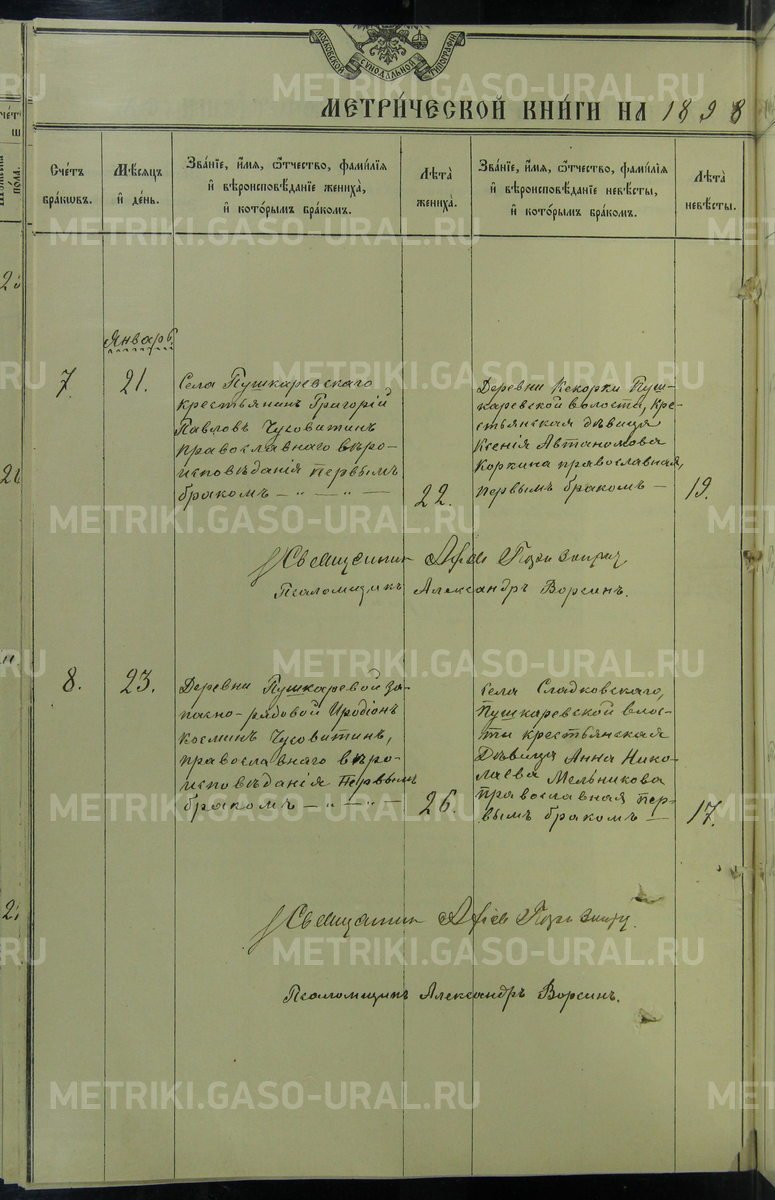 МОСКОВСКОЙ СѴНОДАЛЬНОЙ ТИПОГРАФІИ
МЕТРИ́ЧЕСКОЙ КНИ́ГИ НА 1898
Сче́тъ бра́кѡвъ.
Мѣ́сяцъ и҆ де́нь.
Зва́нїе, и҆́мѧ, ѻ҆́тчество, фами́лїѧ и҆ вѣроисповѣ́данїе жениха̀, и҆ кото́рымъ бра́комъ.
Лѣ́та жениха̀.
Зва́нїе, и҆́мѧ, ѻ҆́тчество, фами́лїѧ и҆ вѣроисповѣ́данїе невѣ́сты, и҆ кото́рымъ бра́комъ.
Лѣ́та невѣ́сты.
Январь
7.
21.
Села Пушкаревскаго
крестьянинъ Григорій
Павловъ Чусовитинъ
православнаго вѣро-
исповѣданія первымъ
бракомъ — „ — „ —
22.
Деревни Кекорки Пуш-
каревской волости, кре-
стьянская дѣвица
Ксенія Автаномова
Коркина православная,
первымъ бракомъ —
19.
Священник
Псаломщикъ Александръ Ворсинъ.
8.
23.
Деревни Пушкаревой за-
пасно-рядовой Иродіонъ
Косминъ Чусовитинъ,
православнаго вѣро-
исповѣданія первымъ
бракомъ — „ — „ —
26.
Села Сладковскаго,
Пушкаревской волос-
ти крестьянская
дѣвица Анна Нико-
лаева Мельникова
православная пер-
вымъ бракомъ —
17.
Священник
Псаломщикъ Александръ Ворсинъ.
METRIKI.GASO-URAL.RU